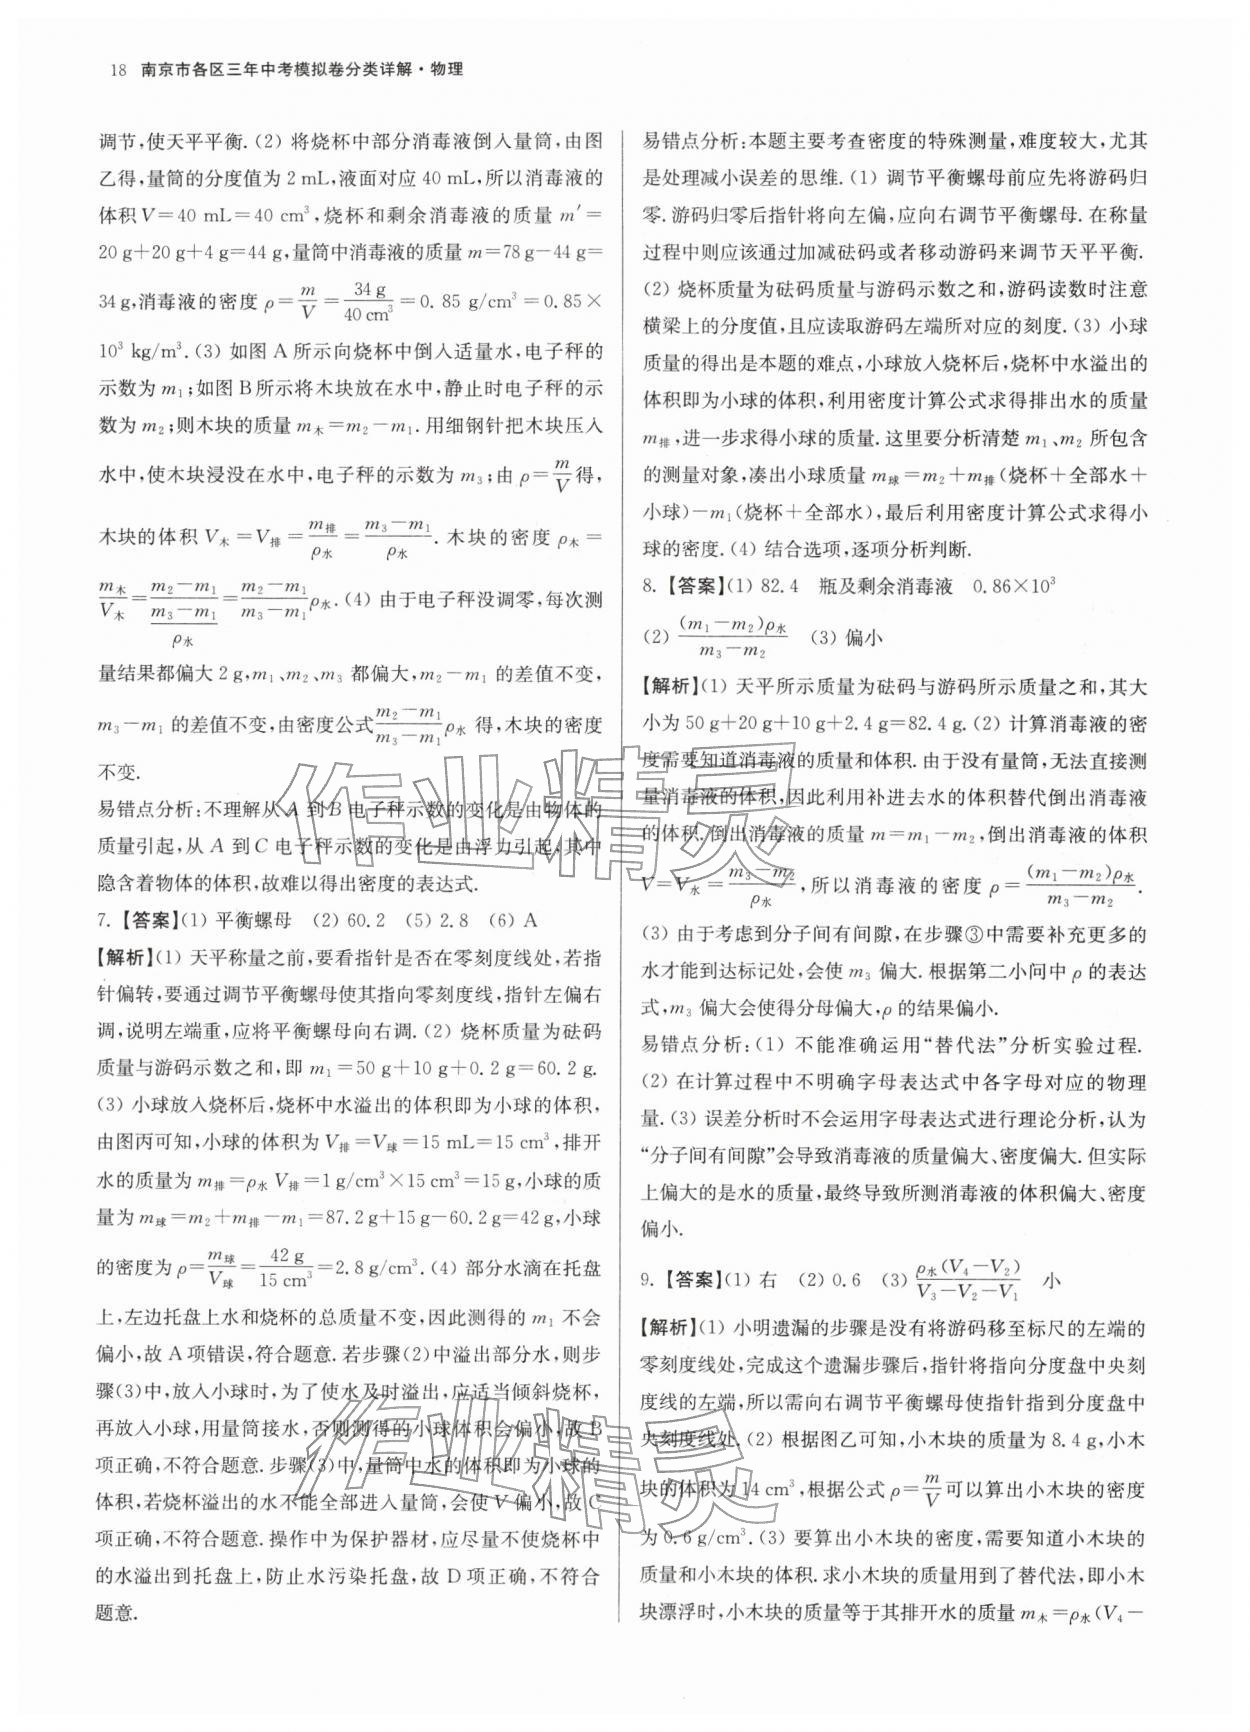 18 南京市各区三年中考模拟卷分类详解·物理
调节,使天平平衡.(2) 将烧杯中部分消毒液倒入量筒,由图
乙得,量筒的分度值为 2 mL,液面对应 40 mL,所以消毒液的
体积V=40 mL=40 cm³,烧杯和剩余消毒液的质量 m′=
20 g+20 g+4 g=44 g,量筒中消毒液的质量 m=78 g-44 g=
34 g,消毒液的密度 ρ=m/V=34 g/40 cm³=0.85 g/cm³=0.85×
10³ kg/m³.(3) 如图 A 所示向烧杯中倒入适量水,电子秤的
示数为 m₁;如图 B 所示将木块放在水中,静止时电子秤的示
数为 m₂;则木块的质量 m木=m₂-m₁.用细钢针把木块压入
水中,使木块浸没在水中,电子秤的示数为 m₃;由 ρ=m/V得,
木块的体积 V木=V排=m排/ρ水=(m₃-m₁)/ρ水.木块的密度 ρ木=
m木/V木=(m₂-m₁)/((m₃-m₁)/ρ水)=(m₂-m₁)/(m₃-m₁)ρ水.(4) 由于电子秤没调零,每次测
量结果都偏大 2 g,m₁、m₂、m₃ 都偏大,m₂-m₁ 的差值不变,
m₃-m₁ 的差值不变,由密度公式(m₂-m₁)/(m₃-m₁)ρ水 得,木块的密度
不变.
易错点分析:不理解从 A 到 B 电子秤示数的变化是由物体的
质量引起,从 A 到 C 电子秤示数的变化是由浮力引起,其中
隐含着物体的体积,故难以得出密度的表达式.
7.【答案】(1) 平衡螺母 (2) 60.2 (5) 2.8 (6) A
【解析】(1) 天平称量之前,要看指针是否在零刻度线处,若指
针偏转,要通过调节平衡螺母使其指向零刻度线,指针左偏右
调,说明左端重,应将平衡螺母向右调.(2) 烧杯质量为砝码
质量与游码示数之和,即 m₁=50 g+10 g+0.2 g=60.2 g.
(3) 小球放入烧杯后,烧杯中水溢出的体积即为小球的体积,
由图丙可知,小球的体积为 V排=V球=15 mL=15 cm³,排开
水的质量为 m排=ρ水 V排=1 g/cm³×15 cm³=15 g,小球的质
量为 m球=m₂+m排-m₁=87.2 g+15 g-60.2 g=42 g,小球
的密度为 ρ=m球/V球=42 g/15 cm³=2.8 g/cm³.(4) 部分水滴在托盘
上,左边托盘上水和烧杯的总质量不变,因此测得的 m₁ 不会
偏小,故 A 项错误,符合题意.若步骤(2)中溢出部分水,则步
骤(3)中,放入小球时,为了使水及时溢出,应适当倾斜烧杯,
再放入小球,用量筒接水,否则测得的小球体积会偏小,故 B
项正确,不符合题意.步骤(3)中,量筒中水的体积即为小球的
体积,若烧杯溢出的水不能全部进入量筒,会使 V 偏小,故 C
项正确,不符合题意.操作中为保护器材,应尽量不使烧杯中
的水溢出到托盘上,防止水污染托盘,故 D 项正确,不符合
题意.
易错点分析:本题主要考查密度的特殊测量,难度较大,尤其
是处理减小误差的思维.(1) 调节平衡螺母前应先将游码归
零.游码归零后指针将向左偏,应向右调节平衡螺母.在称量
过程中则应该通过加减砝码或者移动游码来调节天平平衡.
(2) 烧杯质量为砝码质量与游码示数之和,游码读数时注意
横梁上的分度值,且应读取游码左端所对应的刻度.(3) 小球
质量的得出是本题的难点,小球放入烧杯后,烧杯中水溢出的
体积即为小球的体积,利用密度计算公式求得排出水的质量
m排,进一步求得小球的质量.这里要分析清楚 m₁、m₂ 所包含
的测量对象,凑出小球质量 m球=m₂+m排(烧杯+全部水+
小球)-m₁(烧杯+全部水),最后利用密度计算公式求得小
球的密度.(4) 结合选项,逐项分析判断.
8.【答案】(1) 82.4 瓶及剩余消毒液 0.86×10³
(2) (m₁-m₂)ρ水/(m₃-m₂) (3) 偏小
【解析】(1) 天平所示质量为砝码与游码所示质量之和,其大
小为 50 g+20 g+10 g+2.4 g=82.4 g.(2) 计算消毒液的密
度需要知道消毒液的质量和体积.由于没有量筒,无法直接测
量消毒液的体积,因此利用补进去水的体积替代倒出消毒液
的体积.倒出消毒液的质量 m=m₁-m₂,倒出消毒液的体积
V=V水=(m₃-m₂)/ρ水,所以消毒液的密度 ρ=(m₁-m₂)ρ水/(m₃-m₂).
(3) 由于考虑到分子间有间隙,在步骤③中需要补充更多的
水才能到达标记处,会使 m₃ 偏大.根据第二小问中 ρ 的表达
式,m₃ 偏大会使得分母偏大,ρ 的结果偏小.
易错点分析:(1) 不能准确运用“替代法”分析实验过程.
(2) 在计算过程中不明确字母表达式中各字母对应的物理
量.(3) 误差分析时不会运用字母表达式进行理论分析,认为
“分子间有间隙”会导致消毒液的质量偏大、密度偏大.但实际
上偏大的是水的质量,最终导致所测消毒液的体积偏大、密度
偏小.
9.【答案】(1) 右 (2) 0.6 (3) ρ水(V₄-V₂)/(V₃-V₂-V₁) 小
【解析】(1) 小明遗漏的步骤是没有将游码移至标尺的左端的
零刻度线处,完成这个遗漏步骤后,指针将指向分度盘中央刻
度线的左端,所以需向右调节平衡螺母使指针指到分度盘中
央刻度线处.(2) 根据图乙可知,小木块的质量为 8.4 g,小木
块的体积为 14 cm³,根据公式 ρ=m/V可以算出小木块的密度
为 0.6 g/cm³.(3) 要算出小木块的密度,需要知道小木块的
质量和小木块的体积.求小木块的质量用到了替代法,即小木
块漂浮时,小木块的质量等于其排开水的质量 m木=ρ水(V₄-
作业精灵
作业精灵